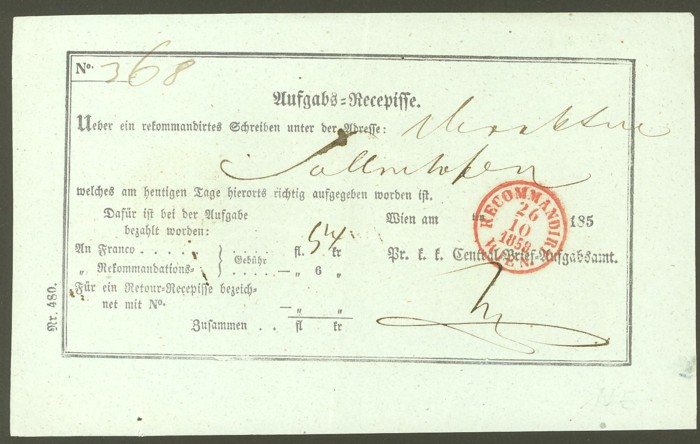 No. 368
Aufgabs-Recepisse.
Ueber ein rekommandirtes Schreiben unter der Adresse:
welches am heutigen Tage hierorts richtig aufgegeben worden ist.
Dafür ist bei der Aufgabe
bezahlt worden:
An Franco . . . . . } Gebühr fl. 54 kr
„ Rekommandations- } . . . . . — „ 6 „
Für ein Retour-Recepisse bezeich-
net mit No. . . . . . . . . — „ „
Zusammen . . fl kr
Wien am 185
Pr. k. k. Central-Brief-Aufgabsamt.
RECOMMANDIRT
26
10
1858
WIEN
Nr. 480.
NE